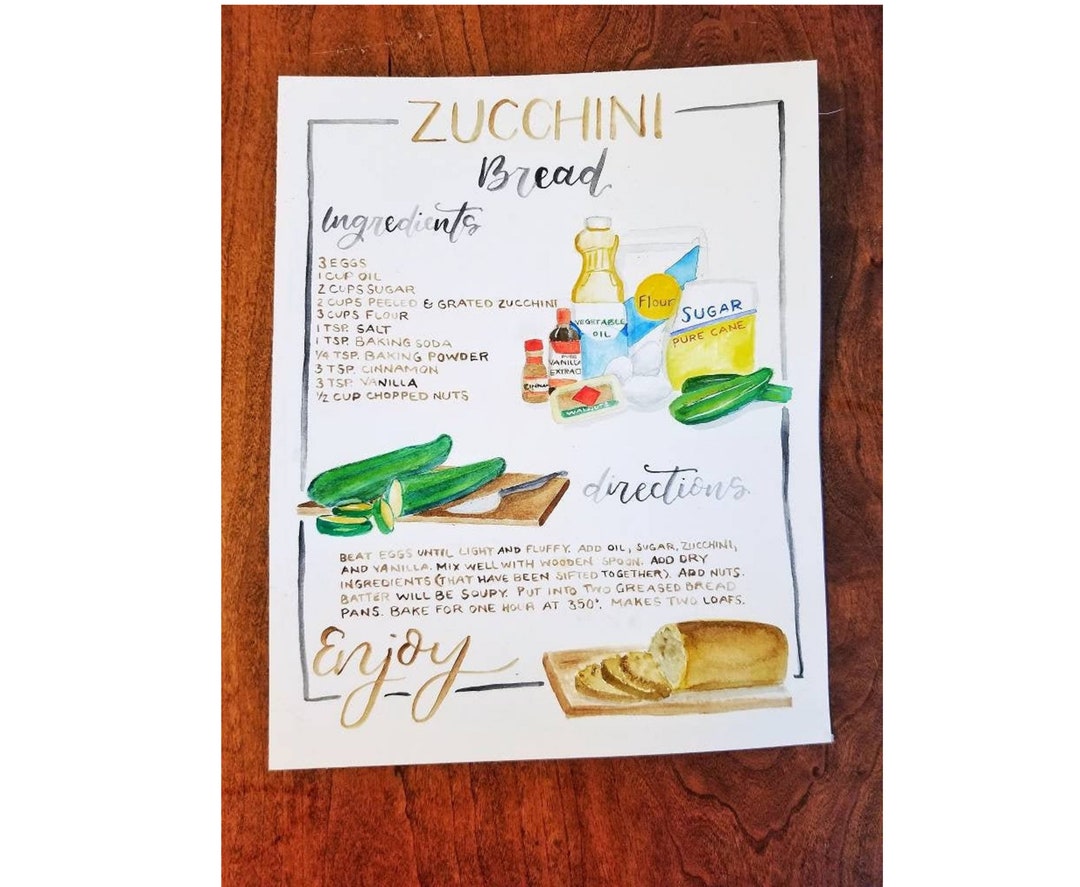 ZUCCHINI
Bread
Ingredients
3 EGGS
1 CUP OIL
2 CUPS SUGAR
2 CUPS PEELED & GRATED ZUCCHINI
3 CUPS FLOUR
1 TSP. SALT
1 TSP. BAKING SODA
1/4 TSP. BAKING POWDER
3 TSP. CINNAMON
3 TSP. VANILLA
1/2 CUP CHOPPED NUTS
Flour
SUGAR
PURE CANE
VEGETABLE
OIL
PURE
VANILLA
EXTRACT
WALNUTS
directions
BEAT EGGS UNTIL LIGHT AND FLUFFY. ADD OIL, SUGAR, ZUCCHINI,
AND VANILLA. MIX WELL WITH WOODEN SPOON. ADD DRY
INGREDIENTS (THAT HAVE BEEN SIFTED TOGETHER). ADD NUTS.
BATTER WILL BE SOUPY. PUT INTO TWO GREASED BREAD
PANS. BAKE FOR ONE HOUR AT 350°. MAKES TWO LOAFS.
Enjoy